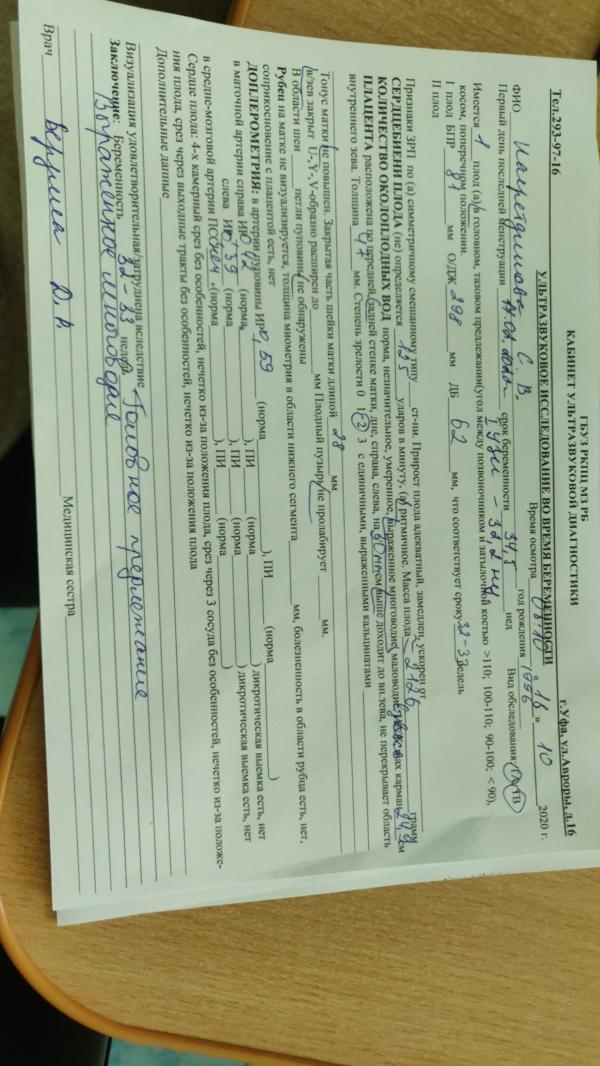 ГБУЗ РКПЦ МЗ РБ
КАБИНЕТ УЛЬТРАЗВУКОВОЙ ДИАГНОСТИКИ
Тел.293-97-16 г.Уфа, ул.Авроры, д.16
УЛЬТРАЗВУКОВОЕ ИССЛЕДОВАНИЕ ВО ВРЕМЯ БЕРЕМЕННОСТИ «16» 10 2020 г.
Время осмотра
ФИО С. В. год рождения 1996 Вид обследования:
Первый день последней менструации срок беременности 34,5 нед
Имеется 1 плод (а) в головном, тазовом предлежании(угол между позвоночником и затылочной костью >110; 100-110; 90-100; < 90),
косом, поперечном положении.
I плод БПР 81 мм О/ДЖ 298 мм ДБ 62 мм, что соответствует сроку 32-33 недель
II плод
Признаки ЗРП по (а) симметричному смешанному типу ст-ни. Прирост плода адекватный, замедлен, ускорен от
СЕРДЦЕБИЕНИ ПЛОДА (не) определяется 135 ударов в минуту, (а) ритмичное. Масса плода 2126 грамм
КОЛИЧЕСТВО ОКОЛОПЛОДНЫХ ВОД норма, незначительное, умеренное, выраженное многоводие, маловодие
ПЛАЦЕНТА расположена по передней, задней стенке матки, дне, справа, слева, на 60 мм выше доходит до вн.зева, не перекрывает область
внутреннего зева. Толщина 47 мм. Степень зрелости 0 1 2 3 с единичными, выраженными кальцинатами
Тонус матки не повышен. Закрытая часть шейки матки длиной 28 мм
в/зев закрыт U-,Y-,V-образно расширен до мм Плодный пузырь не пролабирует мм.
В области шеи петли пуповины не обнаружены
Рубец на матке не визуализируется, толщина миометрия в области нижнего сегмента мм, болезненность в области рубца есть, нет,
соприкосновение с плацентой есть, нет
ДОПЛЕРОМЕТРИЯ: в артерии пуповины ИР 0,59 (норма ), ПИ (норма )
в маточной артерии справа ИР 0,42 (норма ), ПИ (норма ) дикротическая выемка есть, нет
слева ИР 0,39 (норма ), ПИ (норма ) дикротическая выемка есть, нет
в средне-мозговой артерии ПСС (норма ), ПИ (норма )
Сердце плода: 4-х камерный срез без особенностей, нечетко из-за положения плода, срез через 3 сосуда без особенностей, нечетко из-за положе-
ния плода, срез через выходные тракты без особенностей, нечетко из-за положения плода
Дополнительные данные
Визуализация удовлетворительная/затруднена вследствие
Заключение: Беременность 32-33 недель Головное предлежание
Выраженное многоводие
Врач Медицинская сестра